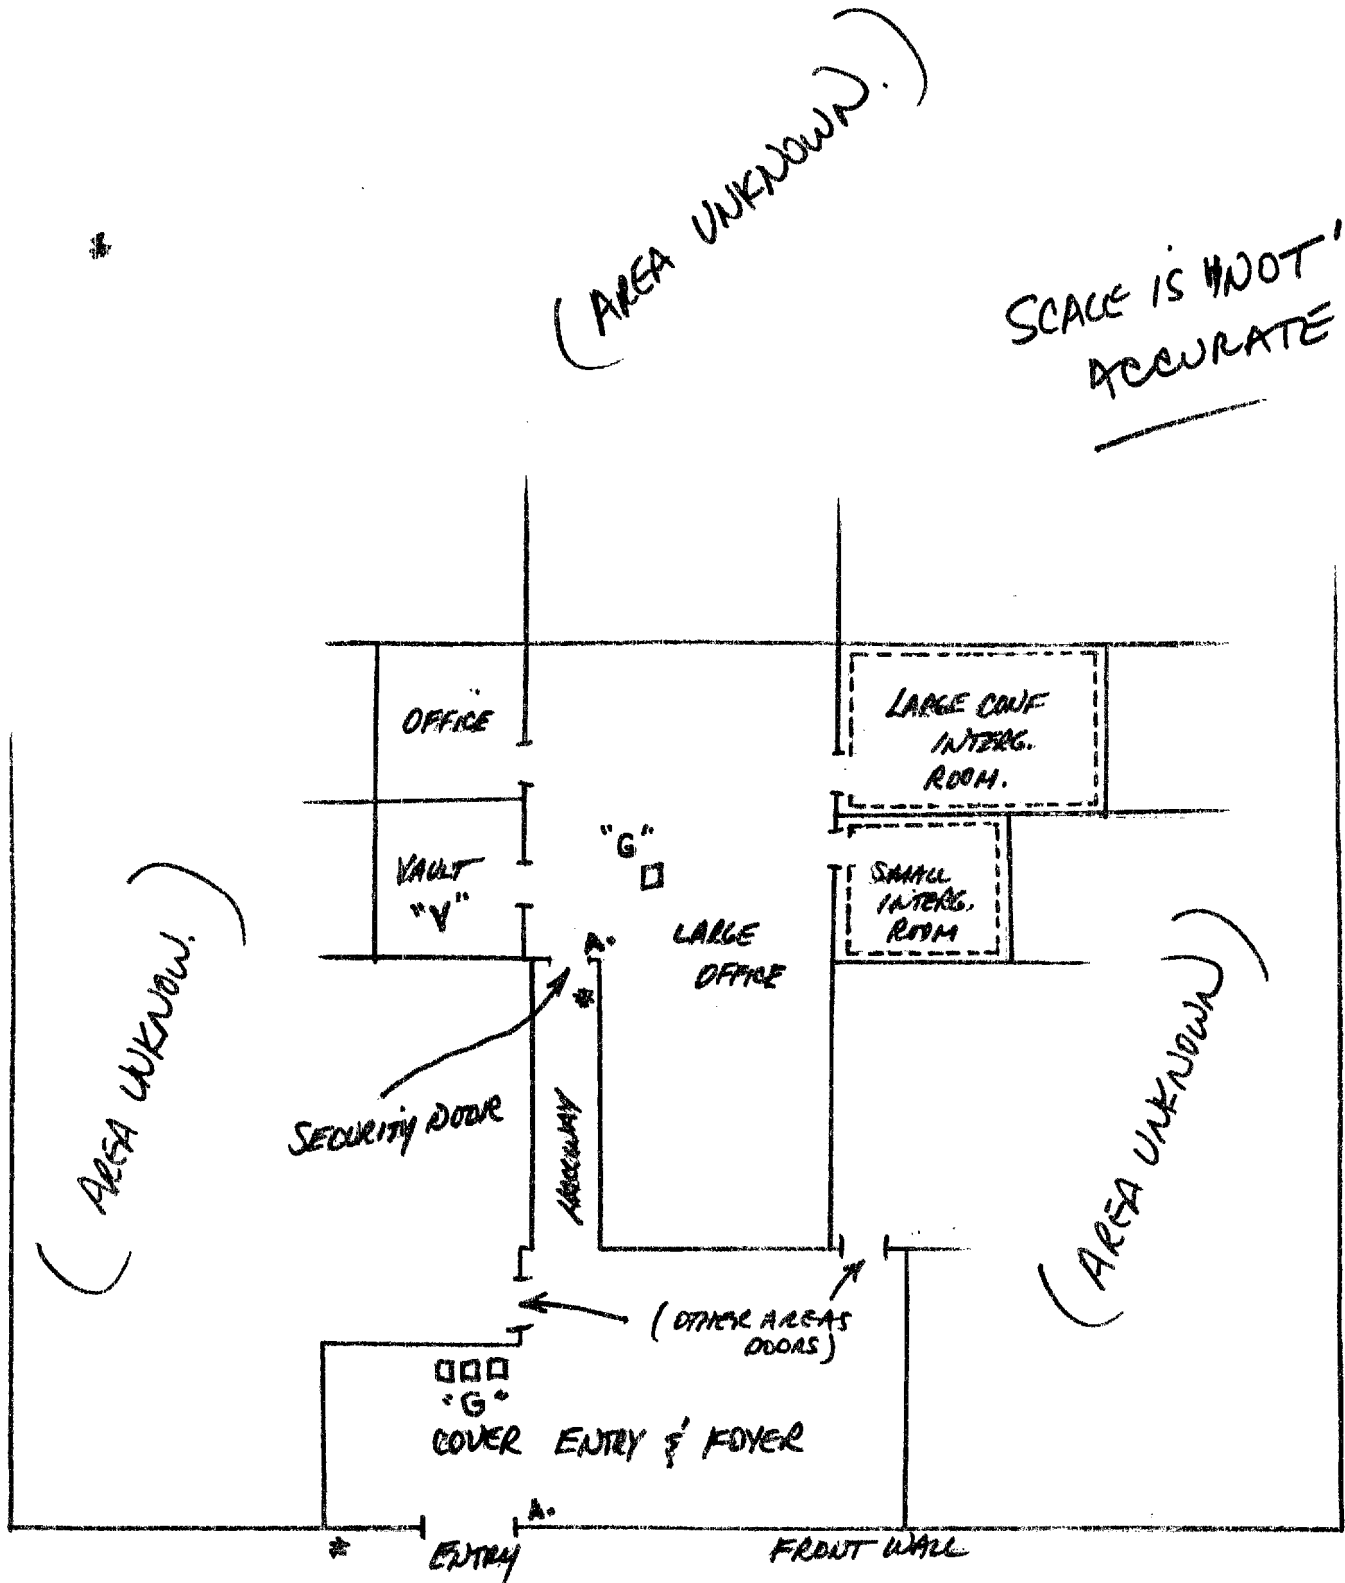 (AREA UNKNOWN.)
*
SCALE IS "NOT'
ACCURATE
OFFICE
LARGE CONF
INTERG.
ROOM.
VAULT
"V"
"G"
SMALL
INTERG.
ROOM
LARGE
OFFICE
A.
*
(AREA UNKNOW.)
SECURITY DOOR
HALLWAY
(AREA UNKNOWN)
(OTHER AREAS
DOORS)
"G"
COVER ENTRY & FOYER
A.
*
ENTRY
FRONT WALL